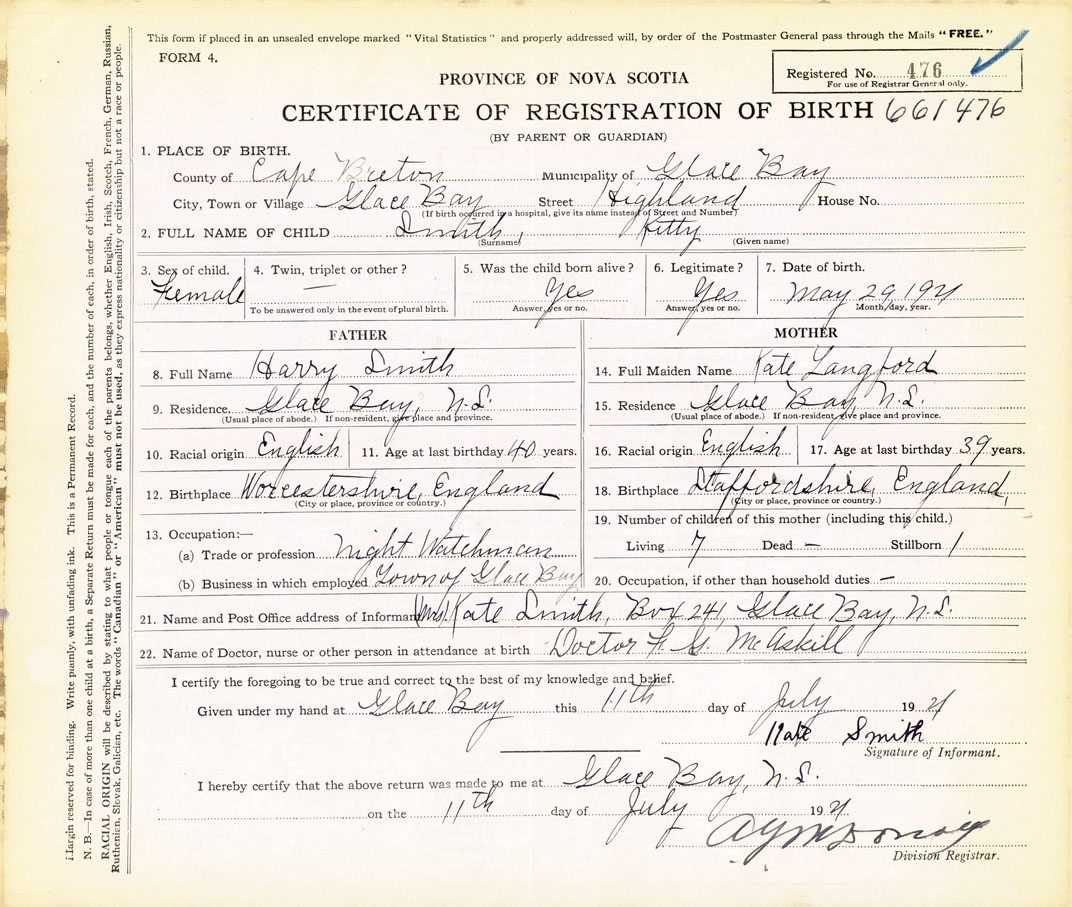 This form if placed in an unsealed envelope marked "Vital Statistics" and properly addressed will, by order of the Postmaster General pass through the Mails "FREE."
FORM 4.
Registered No. 476
For use of Registrar General only.
PROVINCE OF NOVA SCOTIA
CERTIFICATE OF REGISTRATION OF BIRTH 661476
(BY PARENT OR GUARDIAN)
1. PLACE OF BIRTH.
County of Cape Breton Municipality of Glace Bay
City, Town or Village Glace Bay Street Highland House No.
(If birth occurred in a hospital, give its name instead of Street and Number)
2. FULL NAME OF CHILD Smith, Kitty
(Surname) (Given name)
3. Sex of child. 4. Twin, triplet or other? 5. Was the child born alive? 6. Legitimate? 7. Date of birth.
Female — Yes Yes May 29 1921
To be answered only in the event of plural birth. Answer, yes or no. Answer, yes or no. Month, day, year.
FATHER
8. Full Name Harry Smith
9. Residence Glace Bay, N.S.
(Usual place of abode.) If non-resident, give place and province.
10. Racial origin English 11. Age at last birthday 40 years.
12. Birthplace Worcestershire, England
(City or place, province or country.)
13. Occupation:—
(a) Trade or profession Night Watchman
(b) Business in which employed Town of Glace Bay
MOTHER
14. Full Maiden Name Kate Langford
15. Residence Glace Bay, N.S.
(Usual place of abode.) If non-resident, give place and province.
16. Racial origin English 17. Age at last birthday 39 years.
18. Birthplace Staffordshire, England,
(City or place, province or country.)
19. Number of children of this mother (including this child.)
Living 7 Dead — Stillborn 1
20. Occupation, if other than household duties —
21. Name and Post Office address of Informant (Mrs). Kate Smith, Box 241, Glace Bay, N.S.
22. Name of Doctor, nurse or other person in attendance at birth Doctor McAskill
I certify the foregoing to be true and correct to the best of my knowledge and belief.
Given under my hand at Glace Bay this 11th day of July 1921
Kate Smith
Signature of Informant.
I hereby certify that the above return was made to me at Glace Bay, N.S.
on the 11th day of July 1921
Division Registrar.
Margin reserved for binding. Write plainly, with unfading ink. This is a Permanent Record.
N. B.—In case of more than one child at a birth, a Separate Return must be made for each, and the number of each, in order of birth, stated.
RACIAL ORIGIN will be described by stating to what people or tongue each of the parents belongs, whether English, Irish, Scotch, French, German, Russian,
Ruthenian, Slovak, Galician, etc. The words "Canadian" or "American" must not be used, as they express nationality or citizenship but not a race or people.